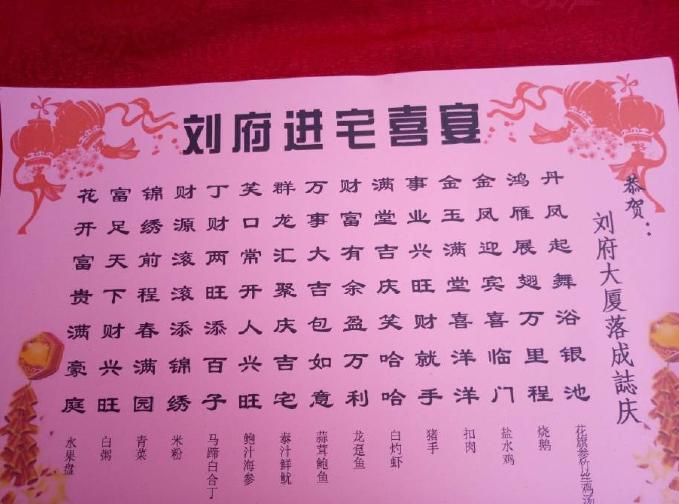 刘府进宅喜宴
恭贺：
刘府大厦落成誌庆
丹凤起舞浴银池
花旗参竹丝鸡汤
鸿雁展翅万里程
烧鹅
金凤迎宾喜临门
盐水鸡
金玉满堂喜洋洋
扣肉
事业兴旺财就手
猪手
满堂吉庆笑哈哈
白灼虾
财富有余盈万利
龙趸鱼
万事大吉包如意
蒜茸鲍鱼
群龙汇聚庆吉宅
泰汁鲜鱿
笑口常开人兴旺
鲍汁海参
丁财两旺添百子
马蹄白合丁
财源滚滚添锦绣
米粉
锦绣前程春满园
青菜
富足天下财兴旺
白粥
花开富贵满豪庭
水果盘